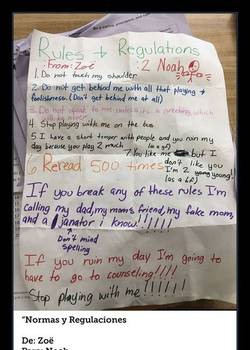 Rules + Regulations
From: Zoë
: 2 Noah
1. Do not touch my shoulder
2. Do not get behind me with all that playing +
foolishness. (Don't get behind me at all)
4. Stop playing with me on the bus
5. I have a short temper with people and you ruin my
day because you play 2 much
(as a gf)
7. You like me but I
don't like you
I'm 2 young young!
(as a bf)
6 Reread 500 times
If you break any of these rules I'm
calling my dad, my moms friend, my fake mom,
and a janator i know!!!!!
Don't mind
Spelling
If you ruin my day I'm going to
have to go to counseling!!!!
Stop playing with me!!!!!!
"Normas y Regulaciones
De: Zoë
Para: Noah